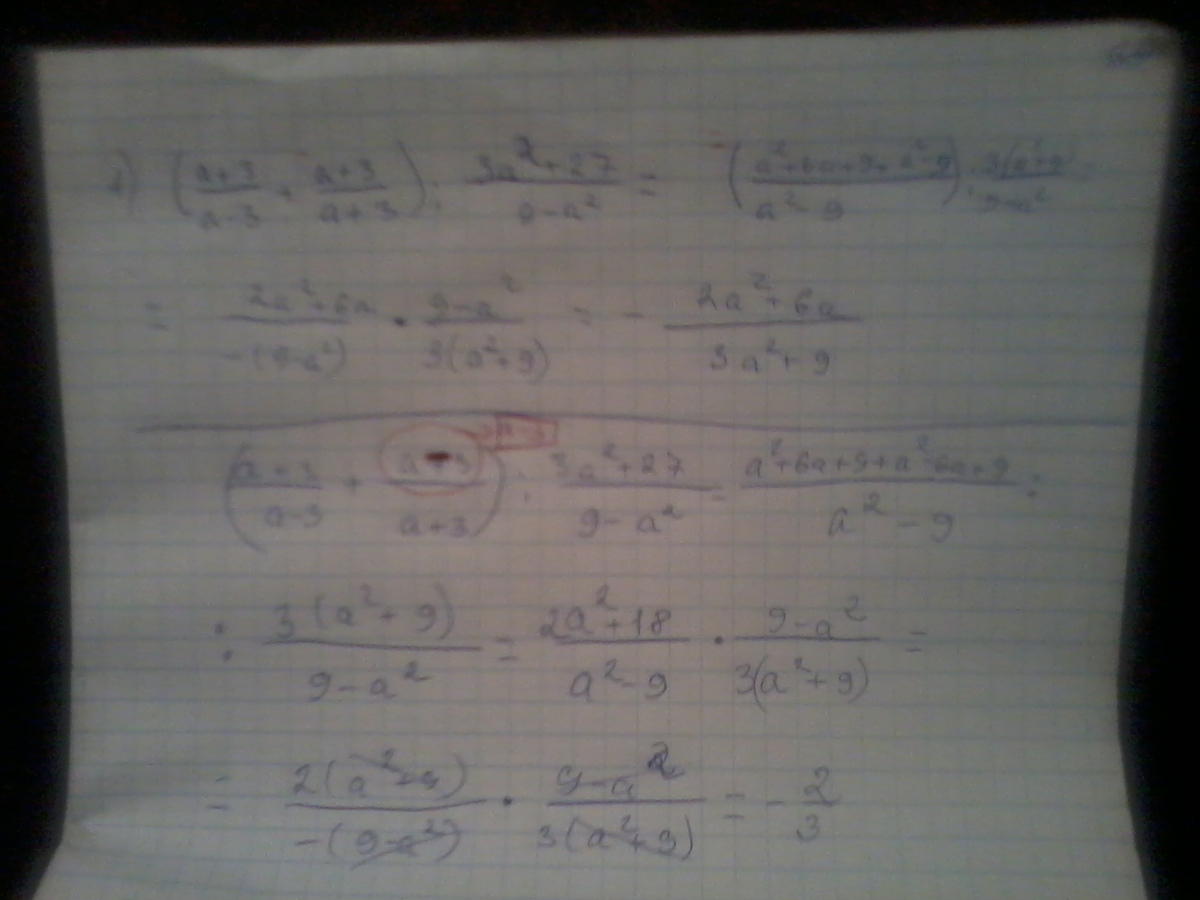 1) (a+3/a-3 + a+3/a+3) : 3a²+27/9-a² = (a²+6a+9+a²-9/a²-9) : 3(a²+9/9-a²
= 2a²+6a/-(9-a²) · 9-a²/3(a²+9) = - 2a²+6a/3a²+9
(a+3/a-3 + a-3/a+3) : 3a²+27/9-a² = a²+6a+9+a²-6a+9/a²-9 :
: 3(a²+9)/9-a² = 2a²+18/a²-9 · 9-a²/3(a²+9) =
= 2(a²+9)/-(9-a²) · 9-a²/3(a²+9) = - 2/3